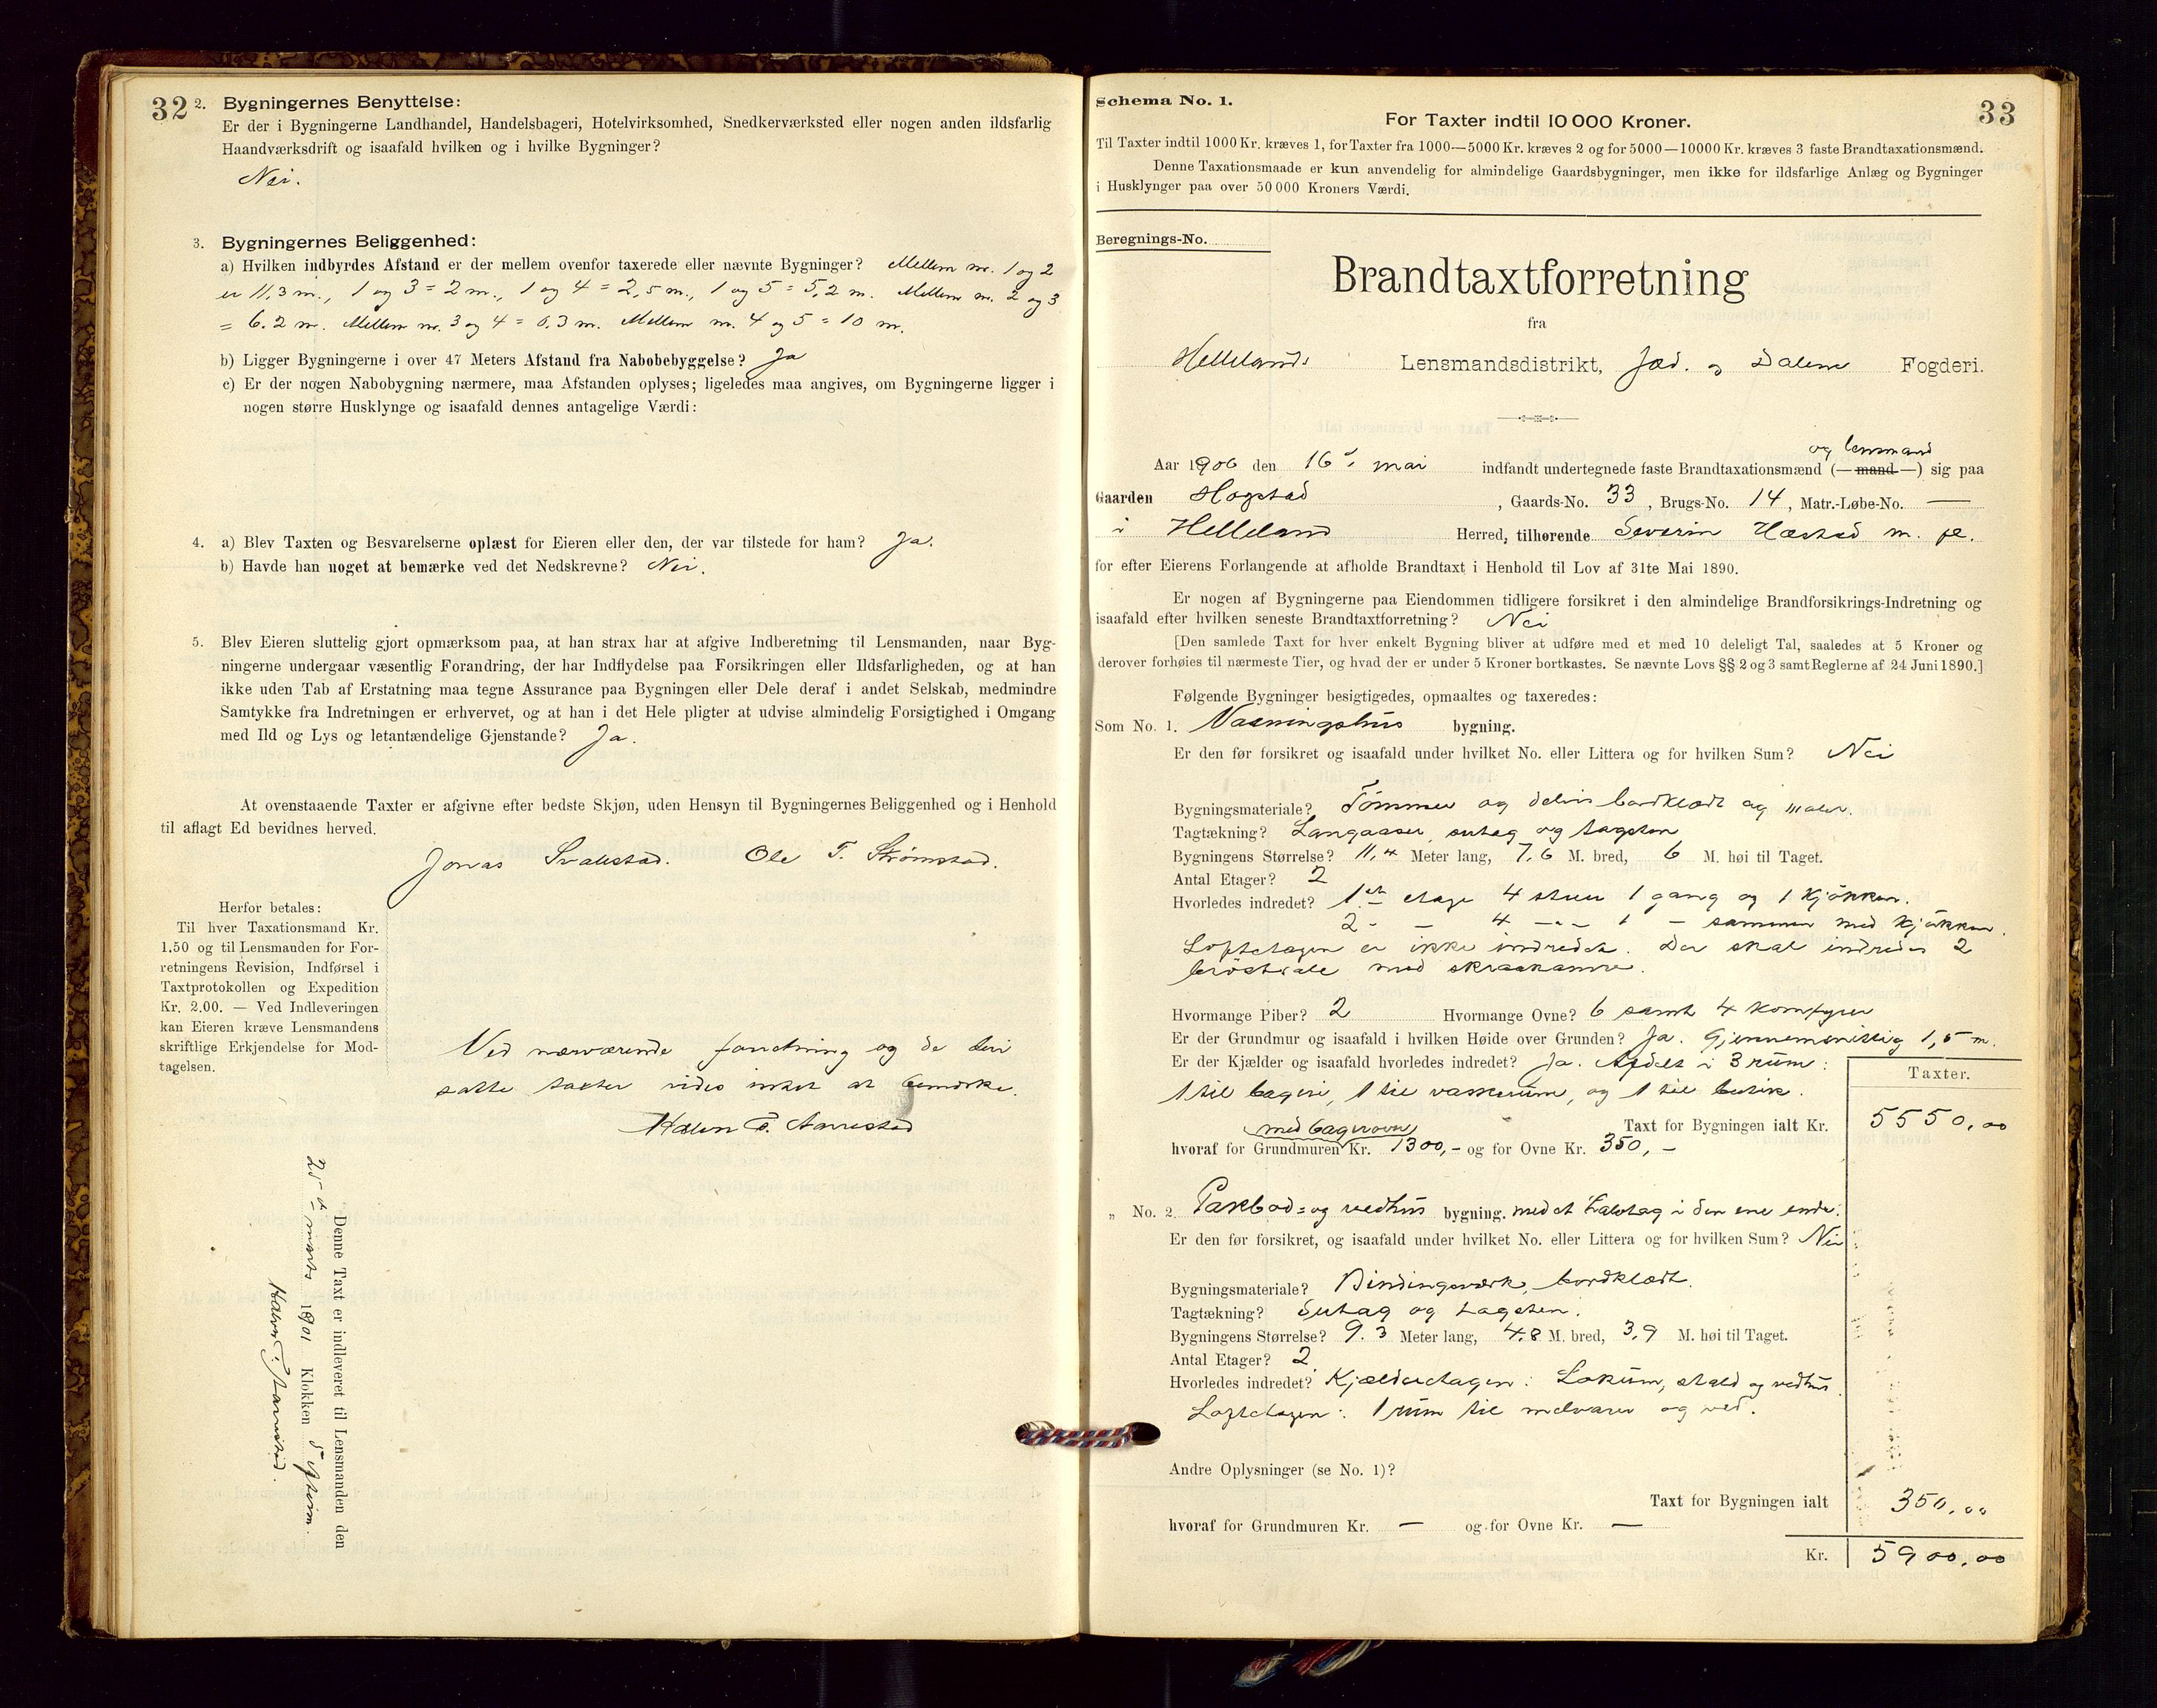 32
2. Bygningernes Benyttelse:
Er der i Bygningerne Landhandel, Handelsbageri, Hotelvirksomhed, Snedkerværksted eller nogen anden ildsfarlig
Haandværksdrift og isaafald hvilken og i hvilke Bygninger?
Nei.
3. Bygningernes Beliggenhed:
a) Hvilken indbyrdes Afstand er der mellem ovenfor taxerede eller nævnte Bygninger? Mellem nr. 1 og 2
er 11,3 m., 1 og 3 = 2 m., 1 og 4 = 2,5 m., 1 og 5 = 5,2 m. Mellem nr. 2 og 3
= 6.2 m. Mellem nr. 3 og 4 = 6,3 m. Mellem nr. 4 og 5 = 10 m.
b) Ligger Bygningerne i over 47 Meters Afstand fra Nabobebyggelse? Ja
c) Er der nogen Nabobygning nærmere, maa Afstanden oplyses; ligeledes maa angives, om Bygningerne ligger i
nogen større Husklynge og isaafald dennes antagelige Værdi:
4. a) Blev Taxten og Besvarelserne oplæst for Eieren eller den, der var tilstede for ham? Ja.
b) Havde han noget at bemærke ved det Nedskrevne? Nei.
5. Blev Eieren sluttelig gjort opmærksom paa, at han strax har at afgive Indberetning til Lensmanden, naar Byg-
ningerne undergaar væsentlig Forandring, der har Indflydelse paa Forsikringen eller Ildsfarligheden, og at han
ikke uden Tab af Erstatning maa tegne Assurance paa Bygningen eller Dele deraf i andet Selskab, medmindre
Samtykke fra Indretningen er erhvervet, og at han i det Hele pligter at udvise almindelig Forsigtighed i Omgang
med Ild og Lys og letantændelige Gjenstande? Ja.
At ovenstaaende Taxter er afgivne efter bedste Skjøn, uden Hensyn til Bygningernes Beliggenhed og i Henhold
til aflagt Ed bevidnes herved.
Jonas Ole T. Strømstad.
Herfor betales:
Til hver Taxationsmand Kr.
1.50 og til Lensmanden for For-
retningens Revision, Indførsel i
Taxtprotokollen og Expedition
Kr. 2.00. — Ved Indleveringen
kan Eieren kræve Lensmandens
skriftlige Erkjendelse for Mod-
tagelsen.
Ved nærværende forretning og de deri
satte taxter vides intet at bemærke.
Denne Taxt er indleveret til Lensmanden den
25de marts 1901 Klokken 5 efterm.
Schema No. 1.
33
For Taxter indtil 10 000 Kroner.
Til Taxter indtil 1000 Kr. kræves 1, for Taxter fra 1000—5000 Kr. kræves 2 og for 5000—10000 Kr. kræves 3 faste Brandtaxationsmænd.
Denne Taxationsmaade er kun anvendelig for almindelige Gaardsbygninger, men ikke for ildsfarlige Anlæg og Bygninger
i Husklynger paa over 50 000 Kroners Værdi.
Beregnings-No.
Brandtaxtforretning
fra
Hellelands Lensmandsdistrikt, Jæd. og Dalene Fogderi.
og lensmand
Aar 1906 den 16d. mai indfandt undertegnede faste Brandtaxationsmænd (—mand—) sig paa
Gaarden Hogstad, Gaards-No. 33, Brugs-No. 14, Matr.-Løbe-No. —
i Helleland Herred, tilhørende Severin Hæstad m. fl.
for efter Eierens Forlangende at afholde Brandtaxt i Henhold til Lov af 31te Mai 1890.
Er nogen af Bygningerne paa Eiendommen tidligere forsikret i den almindelige Brandforsikrings-Indretning og
isaafald efter hvilken seneste Brandtaxtforretning? Nei
[Den samlede Taxt for hver enkelt Bygning bliver at udføre med et med 10 deleligt Tal, saaledes at 5 Kroner og
derover forhøies til nærmeste Tier, og hvad der er under 5 Kroner bortkastes. Se nævnte Lovs §§ 2 og 3 samt Reglerne af 24 Juni 1890.]
Følgende Bygninger besigtigedes, opmaaltes og taxeredes:
Som No. 1. Vaaningshus bygning.
Er den før forsikret og isaafald under hvilket No. eller Littera og for hvilken Sum? Nei
Bygningsmateriale? Tømmer og delvis bordklædt og malet.
Tagtækning? Langaaser, sutag og tagsten
Bygningens Størrelse? 11,4 Meter lang, 7,6 M. bred, 6 M. høi til Taget.
Antal Etager? 2
Hvorledes indredet? 1ste etage 4 stuer 1 gang og 1 Kjøkken.
2 - - 4 - - - 1 - sammen med Kjøkken.
Loftetagen er ikke indredet. Der skal indredes 2
med
Hvormange Piber? 2 Hvormange Ovne? 6 samt 4 Komfyrer
Er der Grundmur og isaafald i hvilken Høide over Grunden? Ja. Gjennemsnitlig 1,5 m.
Er der Kjælder og isaafald hvorledes indredet? Ja. Afdelt i 3 rum:
1 til bageri, 1 til vaskerum, og 1 til butik.
Taxter.
Taxt for Bygningen ialt Kr. 5550,00
med bagerovn
hvoraf for Grundmuren Kr. 1300,- og for Ovne Kr. 350,-
„ No. 2. Pakbod= og vedhus bygning. med et halvtag i den ene ende.
Er den før forsikret, og isaafald under hvilket No. eller Littera og for hvilken Sum? Nei
Bygningsmateriale? Bindingsværk, bordklædt.
Tagtækning? Sutag og tagsten.
Bygningens Størrelse? 9.3 Meter lang, 4.8 M. bred, 3,9 M. høi til Taget.
Antal Etager? 2
Hvorledes indredet? Kjælderetagen: Lokum, stald og vedhus
Loftetagen: 1 rum til melvarer og ved.
Andre Oplysninger (se No. 1)?
Taxt for Bygningen ialt 350,00
hvoraf for Grundmuren Kr. — og for Ovne Kr. —
Kr. 5900,00